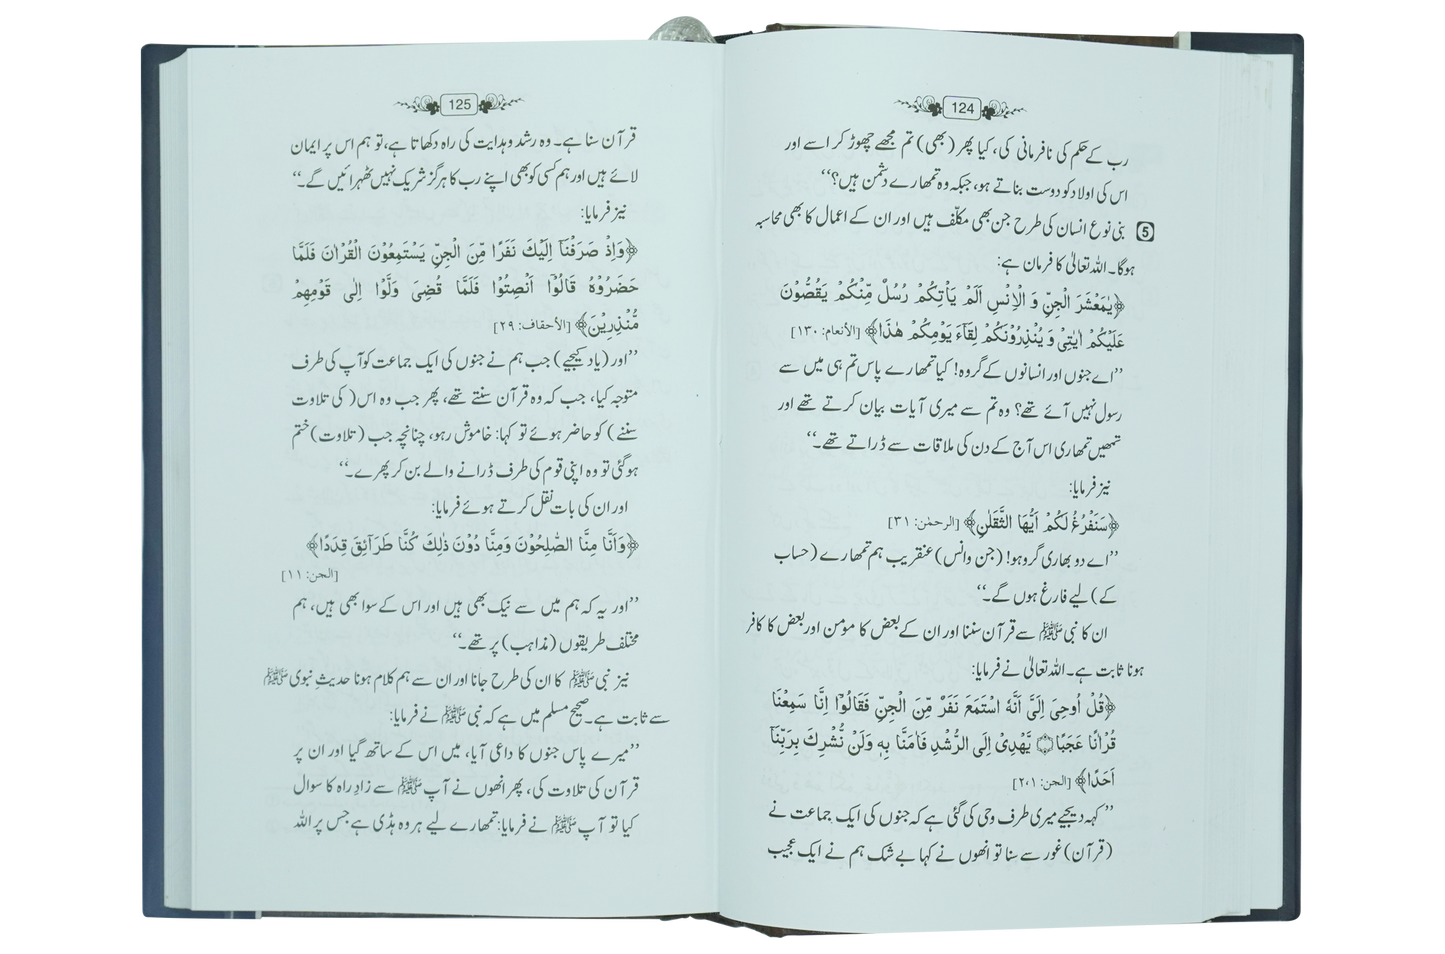 124
رب کے حکم کی نافرمانی کی، کیا پھر (بھی) تم مجھے چھوڑ کر اسے اور
اس کی اولاد کو دوست بناتے ہو، جبکہ وہ تمھارے دشمن ہیں؟‘‘
5 بنی نوع انسان کی طرح جن بھی مکلّف ہیں اور ان کے اعمال کا بھی محاسبہ
ہوگا۔ اللہ تعالیٰ کا فرمان ہے:
﴿يٰمَعْشَرَ الْجِنِّ وَ الْاِنْسِ اَلَمْ يَاْتِكُمْ رُسُلٌ مِّنْكُمْ يَقُصُّوْنَ
عَلَيْكُمْ اٰيٰتِيْ وَ يُنْذِرُوْنَكُمْ لِقَآءَ يَوْمِكُمْ هٰذَا﴾ [الأنعام: ١٣٠]
’’اے جنوں اور انسانوں کے گروہ! کیا تمھارے پاس تم ہی میں سے
رسول نہیں آئے تھے؟ وہ تم سے میری آیات بیان کرتے تھے اور
تمھیں تمھاری اس آج کے دن کی ملاقات سے ڈراتے تھے۔‘‘
نیز فرمایا:
﴿سَنَفْرُغُ لَكُمْ اَيُّهَا الثَّقَلٰنِ﴾ [الرحمٰن: ٣١]
’’اے دو بھاری گروہو! (جن و انس) عنقریب ہم تمھارے (حساب
کے) لیے فارغ ہوں گے۔‘‘
ان کا نبی ﷺ سے قرآن سننا اور ان کے بعض کا مؤمن اور بعض کا کافر
ہونا ثابت ہے۔ اللہ تعالیٰ نے فرمایا:
﴿قُلْ اُوْحِيَ اِلَيَّ اَنَّهُ اسْتَمَعَ نَفَرٌ مِّنَ الْجِنِّ فَقَالُوْٓا اِنَّا سَمِعْنَا
قُرْاٰنًا عَجَبًا ۝ يَّهْدِيْٓ اِلَى الرُّشْدِ فَاٰمَنَّا بِهٖ وَلَنْ نُّشْرِكَ بِرَبِّنَآ
اَحَدًا﴾ [الجن: ٢،١]
’’کہہ دیجیے میری طرف وحی کی گئی ہے کہ جنوں کی ایک جماعت نے
(قرآن) غور سے سنا تو انھوں نے کہا بے شک ہم نے ایک عجیب
125
قرآن سنا ہے۔ وہ رشد و ہدایت کی راہ دکھاتا ہے، تو ہم اس پر ایمان
لائے ہیں اور ہم کسی کو بھی اپنے رب کا ہرگز شریک نہیں ٹھہرائیں گے۔‘‘
نیز فرمایا:
﴿وَاِذْ صَرَفْنَآ اِلَيْكَ نَفَرًا مِّنَ الْجِنِّ يَسْتَمِعُوْنَ الْقُرْاٰنَ فَلَمَّا
حَضَرُوْهُ قَالُوْٓا اَنْصِتُوْا فَلَمَّا قُضِيَ وَلَّوْا اِلٰى قَوْمِهِمْ
مُّنْذِرِيْنَ﴾ [الأحقاف: ٢٩]
’’اور (یاد کیجیے) جب ہم نے جنوں کی ایک جماعت کو آپ کی طرف
متوجہ کیا، جب کہ وہ قرآن سنتے تھے، پھر جب وہ اس ( کی تلاوت
سننے) کو حاضر ہوئے تو کہا: خاموش رہو، چنانچہ جب (تلاوت) ختم
ہوگئی تو وہ اپنی قوم کی طرف ڈرانے والے بن کر پھرے۔‘‘
اور ان کی بات نقل کرتے ہوئے فرمایا:
﴿وَاَنَّا مِنَّا الصّٰلِحُوْنَ وَمِنَّا دُوْنَ ذٰلِكَ كُنَّا طَرَآئِقَ قِدَدًا﴾
[الجن: ١١]
’’اور یہ کہ ہم میں سے نیک بھی ہیں اور اس کے سوا بھی ہیں، ہم
مختلف طریقوں (مذاہب) پر تھے۔‘‘
نیز نبی ﷺ کا ان کی طرح جانا اور ان سے ہم کلام ہونا حدیثِ نبوی ﷺ
سے ثابت ہے۔ صحیح مسلم میں ہے کہ نبی ﷺ نے فرمایا:
’’میرے پاس جنوں کا داعی آیا، میں اس کے ساتھ گیا اور ان پر
قرآن کی تلاوت کی، پھر انھوں نے آپ ﷺ سے زادِ راہ کا سوال
کیا تو آپ ﷺ نے فرمایا: تمھارے لیے ہر وہ ہڈی ہے جس پر اللہ